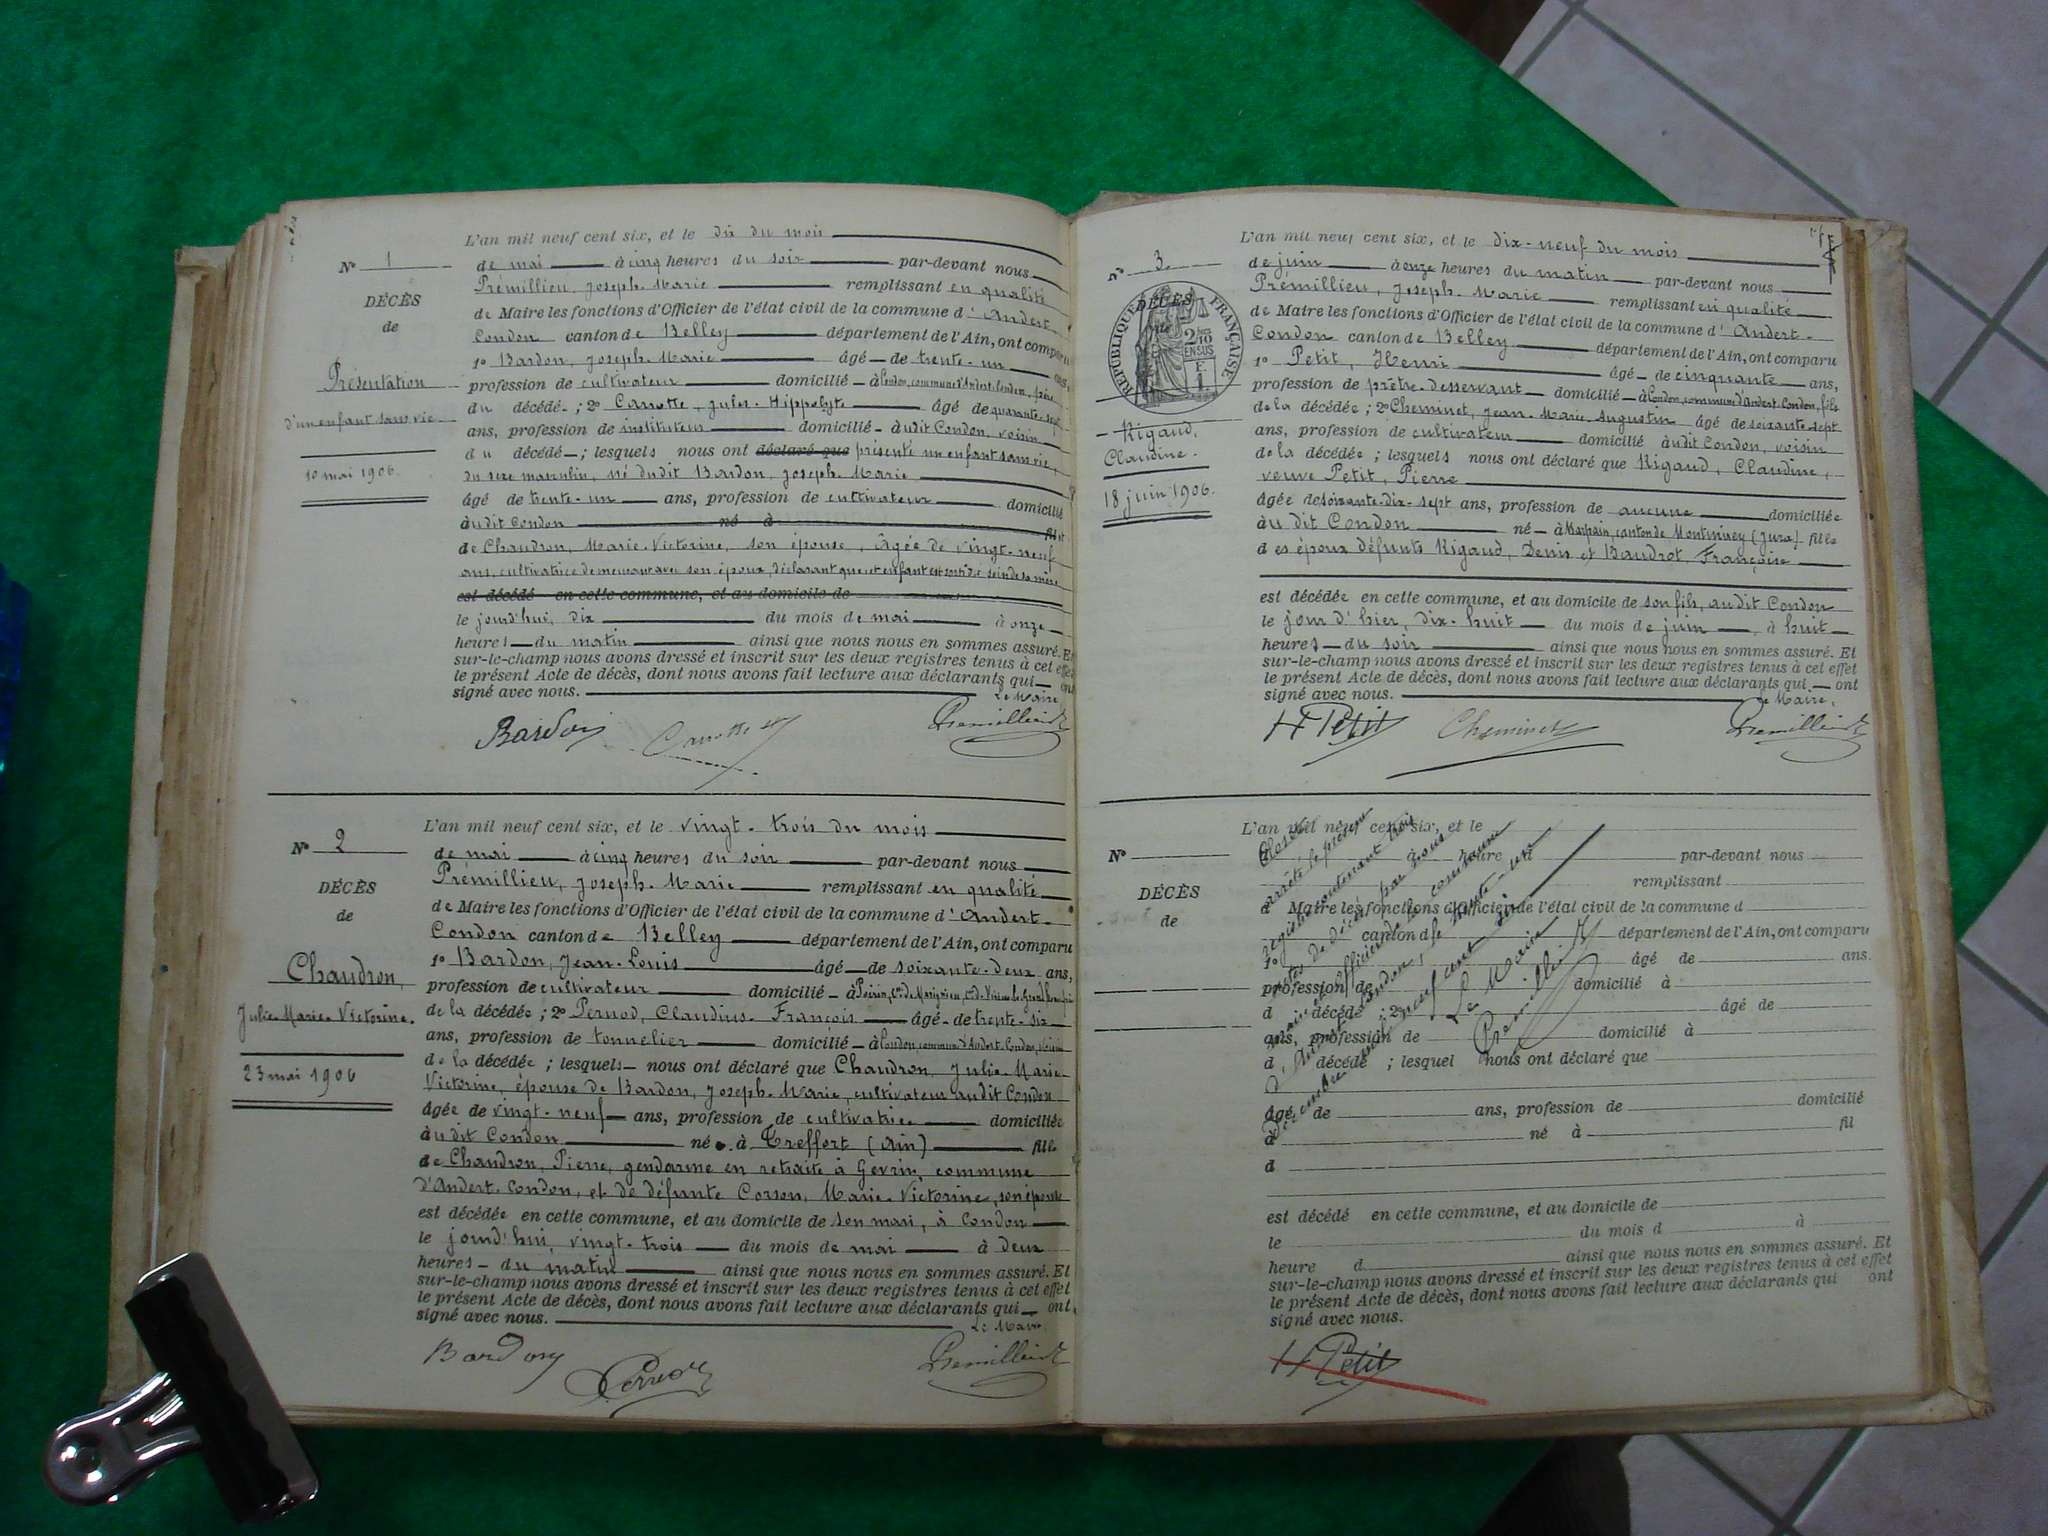 L'an mil neuf cent six, et le dix du mois
N° 1
de mai à cinq heures du soir par-devant nous
Prémillieu, Joseph-Marie remplissant en qualité
DÉCÈS
de Maire les fonctions d'Officier de l'état civil de la commune d'Andert-
de
Condon canton de Belley département de l'Ain, ont comparu
1° Bardon, Joseph-Marie âgé de trente-un ans,
Présentation
profession de cultivateur domicilié à Condon, commune d'Andert-Condon, père
du décédé; 2° Carotte, Jules-Hippolyte âgé de quarante-sept
d'un enfant sans vie
ans, profession de instituteur domicilié audit Condon, voisin
du décédé; lesquels nous ont déclaré que présenté un enfant sans vie,
10 mai 1906.
du sexe masculin, né dudit Bardon, Joseph-Marie
âgé de trente-un ans, profession de cultivateur domicilié
audit Condon né à fil et
de Chaudron, Marie-Victorine, son épouse, âgée de vingt-neuf
ans, cultivatrice demeurant avec son époux, déclarant que cet enfant est sorti du sein de sa mère
est décédé en cette commune, et au domicile de
le jourd'hui, dix du mois de mai à onze
heures du matin ainsi que nous nous en sommes assuré. Et
sur-le-champ nous avons dressé et inscrit sur les deux registres tenus à cet effet
le présent Acte de décès, dont nous avons fait lecture aux déclarants qui ont
signé avec nous. Le Maire
Bardon Carotte Prémillieu
L'an mil neuf cent six, et le vingt-trois du mois
N° 2
de mai à cinq heures du soir par-devant nous
Prémillieu, Joseph-Marie remplissant en qualité
DÉCÈS
de Maire les fonctions d'Officier de l'état civil de la commune d'Andert-
de
Condon canton de Belley département de l'Ain, ont comparu
1° Bardon, Jean-Louis âgé de soixante-deux ans,
Chaudron,
profession de cultivateur domicilié à
Julie-Marie-Victorine.
de la décédée; 2° Pernod, Claudius-François âgé de trente-six
ans, profession de tonnelier domicilié à Condon, commune d'Andert-Condon, voisin
de la décédée; lesquels nous ont déclaré que Chaudron, Julie-Marie-
23 mai 1906
Victorine, épouse de Bardon, Joseph-Marie, cultivateur audit Condon
âgée de vingt-neuf ans, profession de cultivatrice domiciliée
audit Condon née à Treffort (Ain) fille
de Chaudron, Pierre, gendarme en retraite à Gevrin, commune
d'Andert-Condon, et de défunte Corson, Marie-Victorine, son épouse
est décédée en cette commune, et au domicile de son mari, à Condon
le jourd'hui, vingt-trois du mois de mai à deux
heures du matin ainsi que nous nous en sommes assuré. Et
sur-le-champ nous avons dressé et inscrit sur les deux registres tenus à cet effet
le présent Acte de décès, dont nous avons fait lecture aux déclarants qui ont
signé avec nous. Le Maire
Bardon Pernod Prémillieu
L'an mil neuf cent six, et le dix-neuf du mois
N° 3
de juin à onze heures du matin par-devant nous
Prémillieu, Joseph-Marie remplissant en qualité
DÉCÈS
de
RÉPUBLIQUE FRANÇAISE
2/10 EN SUS
F 1
de Maire les fonctions d'Officier de l'état civil de la commune d'Andert-
Condon canton de Belley département de l'Ain, ont comparu
1° Petit, Henri âgé de cinquante ans,
profession de prêtre-desservant domicilié à Condon, commune d'Andert-Condon, fils
de la décédée; 2° Cheminet, Jean-Marie-Augustin âgé de soixante-sept
Rigaud,
ans, profession de cultivateur domicilié audit Condon, voisin
Claudine.
de la décédée; lesquels nous ont déclaré que Rigaud, Claudine,
veuve Petit, Pierre
18 juin 1906.
âgée de soixante-dix-sept ans, profession de aucune domiciliée
au dit Condon né à Marpain, canton de Montmirey (Jura) fille
des époux défunts Rigaud, Denis et Baudrot, Françoise
est décédée en cette commune, et au domicile de son fils, audit Condon
le jour d'hier, dix-huit du mois de juin, à huit
heures du soir ainsi que nous nous en sommes assuré. Et
sur-le-champ nous avons dressé et inscrit sur les deux registres tenus à cet effet
le présent Acte de décès, dont nous avons fait lecture aux déclarants qui ont
signé avec nous. Le Maire,
H Petit Cheminet Prémillieu
L'an mil neuf cent six, et le
N°
à heure d par-devant nous
remplissant
DÉCÈS
d Maire les fonctions d'Officier de l'état civil de la commune d
de
canton d département de l'Ain, ont comparu
1° âgé de ans.
profession de domicilié à
d décédé; 2° âgé de
ans, profession de domicilié à
d décédé; lesquel nous ont déclaré que
âgé de ans, profession de domicilié
à né à fil
d
est décédé en cette commune, et au domicile de
le du mois d à
heure d ainsi que nous nous en sommes assuré. Et
sur-le-champ nous avons dressé et inscrit sur les deux registres tenus à cet effet
le présent Acte de décès, dont nous avons fait lecture aux déclarants qui ont
signé avec nous.
Clos et
arrêté le présent
registre contenant trois
actes de décès par nous
Maire, officier de la commune
d'Andert-Condon, le trente-un
décembre mil neuf cent six
Le Maire
Prémillieu
H Petit